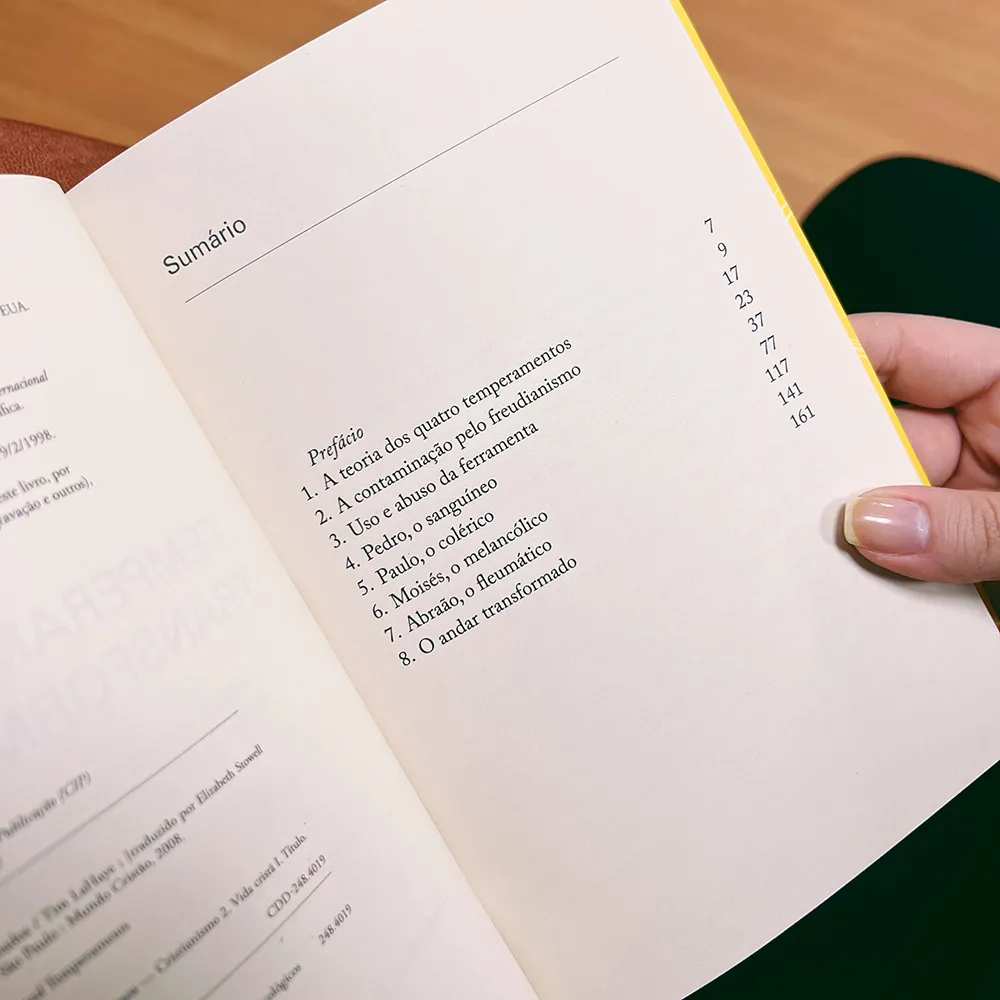 EUA.
ernacional
fica.
9/2/1998.
este livro, por
ravação e outros),
Publicação (CIP)
Tim LaHaye ; traduzido por Elizabeth Stowell
São Paulo : Mundo Cristão, 2008.
Cristianismo 2. Vida cristã I. Título.
CDD-248.4019
ológicos 248.4019
Sumário
Prefácio 7
1. A teoria dos quatro temperamentos 9
2. A contaminação pelo freudianismo 17
3. Uso e abuso da ferramenta 23
4. Pedro, o sanguíneo 37
5. Paulo, o colérico 77
6. Moisés, o melancólico 117
7. Abraão, o fleumático 141
8. O andar transformado 161